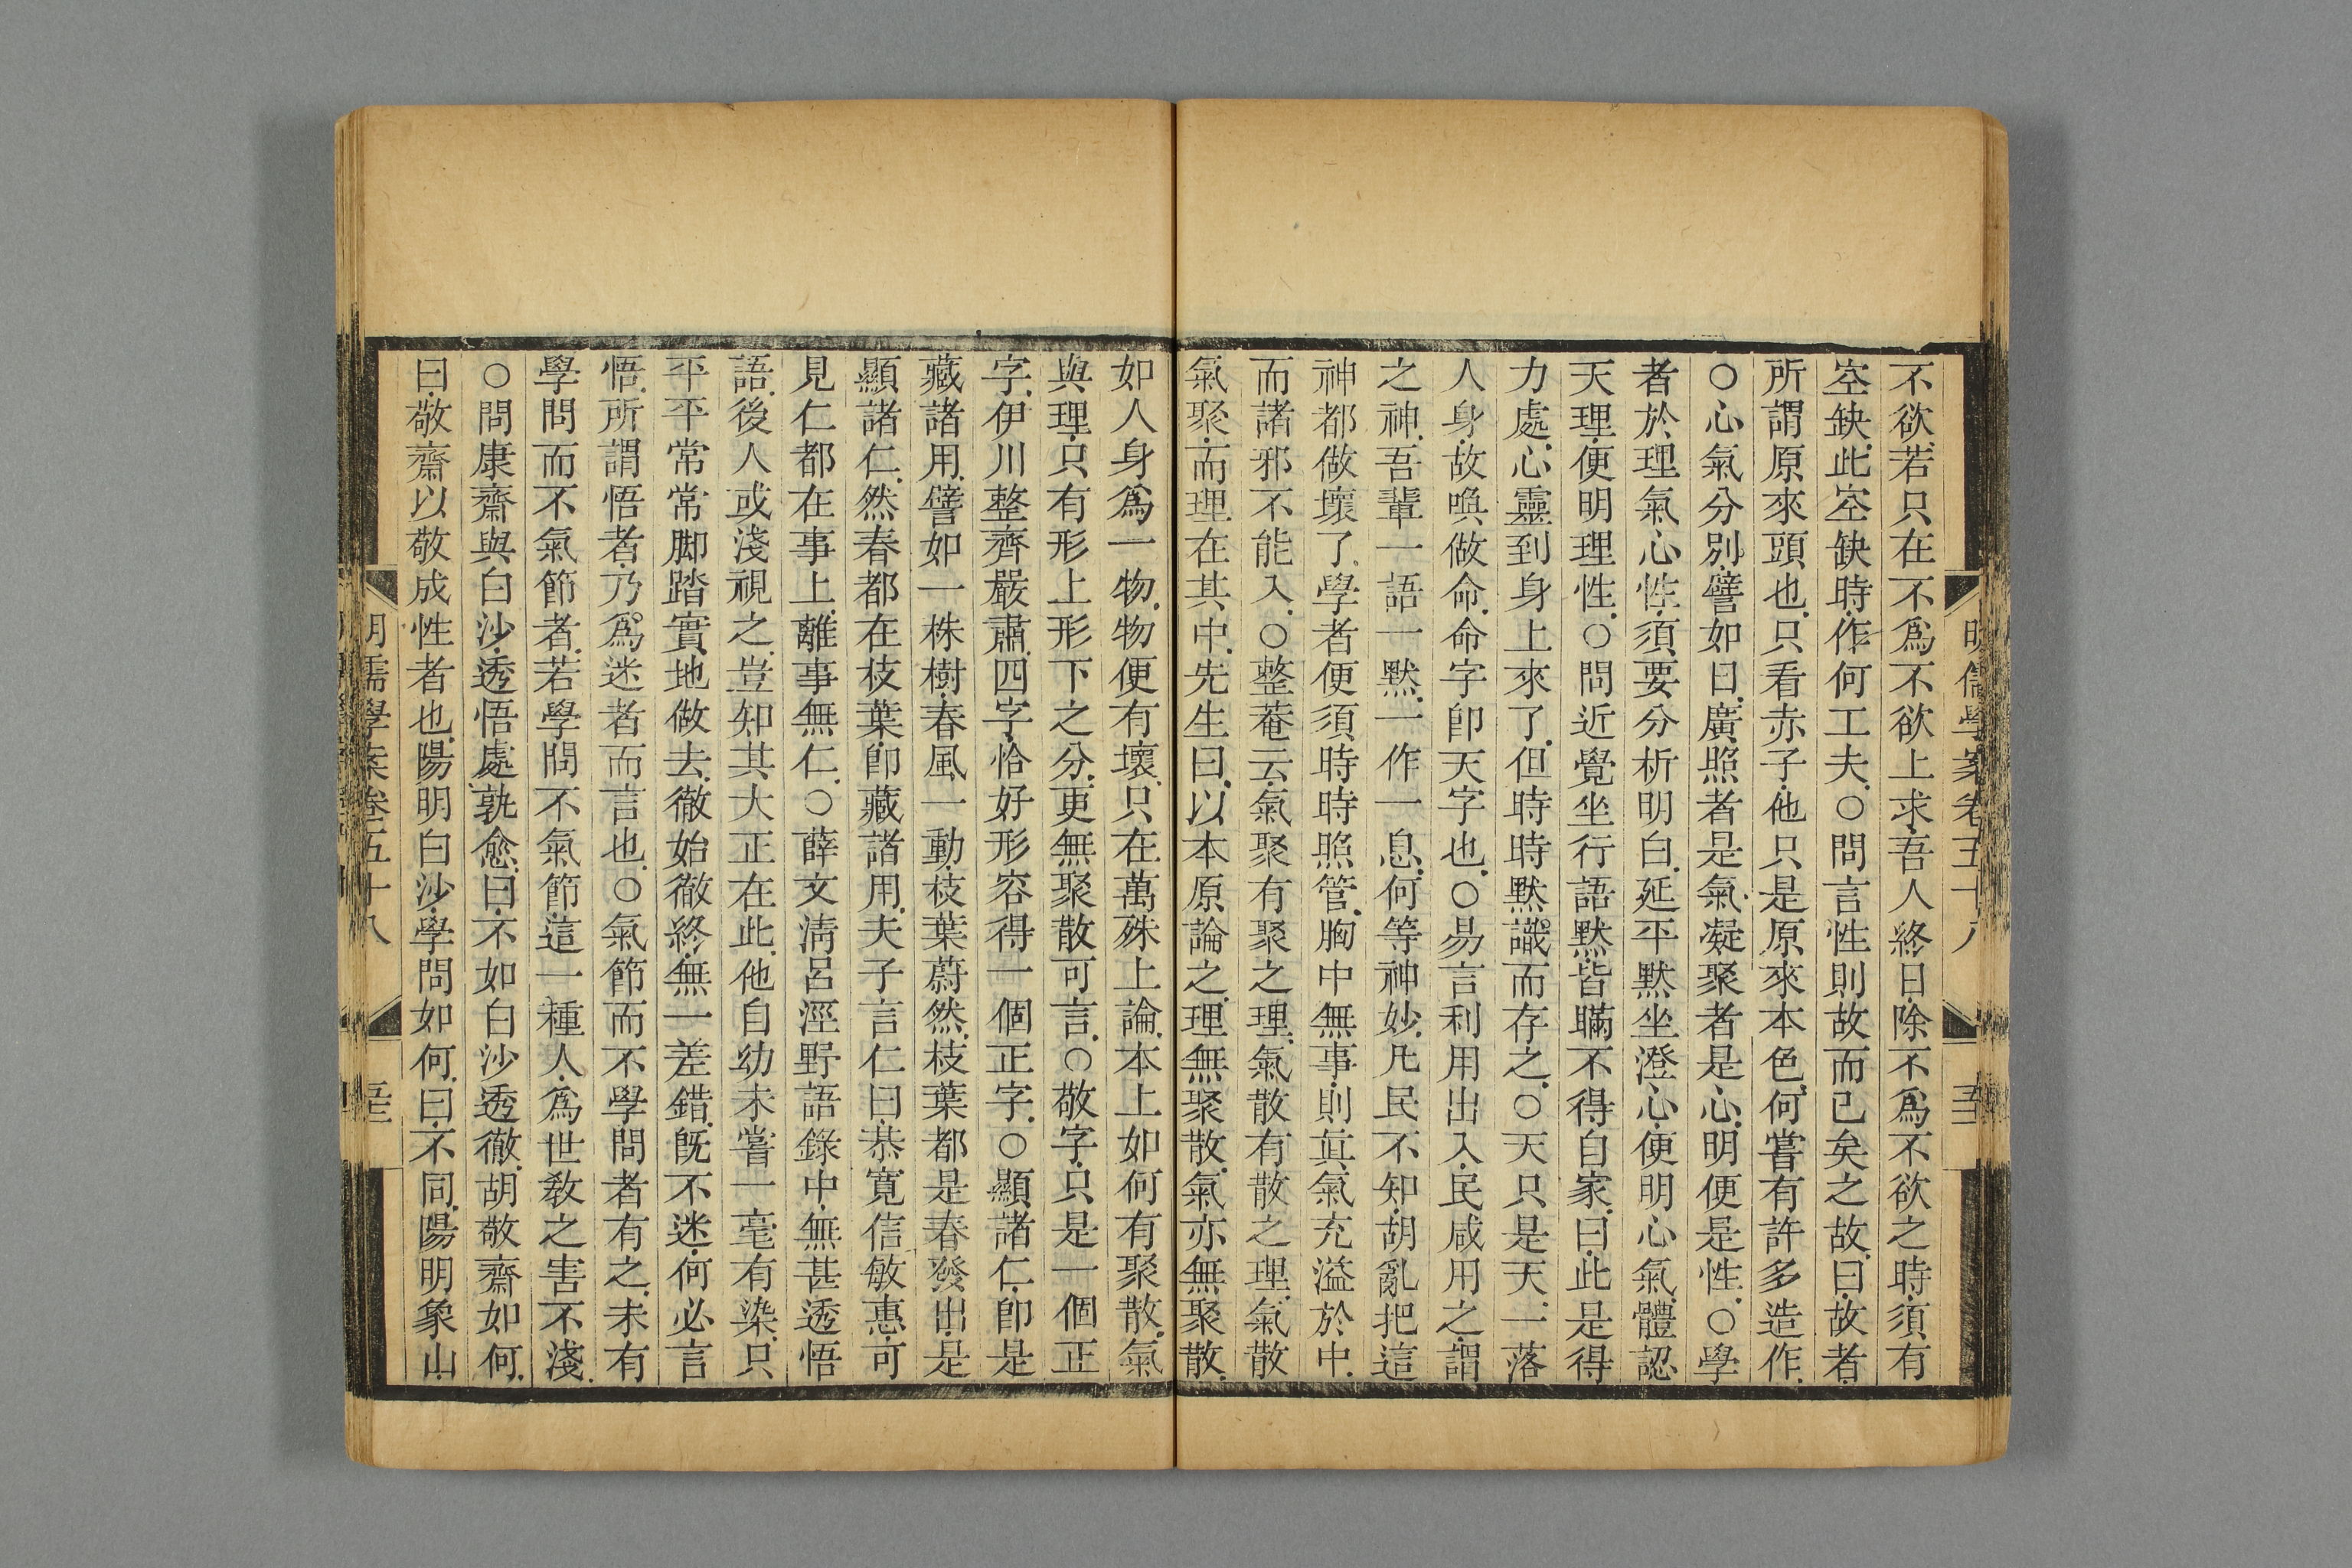 不欲若只在不爲不欲上求吾人終日除不爲不欲之時須有
空缺此空缺時作何工夫○問言性則故而已矣之故曰故者
所謂原來頭也只看赤子他只是原來本色何嘗有許多造作
○心氣分別譬如日廣照者是氣凝聚者是心明便是性○學
者於理氣心性須要分析明白延平默坐澄心便明心氣體認
天理便明理性○問近覺坐行語默皆瞞不得自家曰此是得
力處心靈到身上來了但時時默識而存之○天只是天一落
人身故喚做命命字卽天字也○易言利用出入民咸用之謂
之神吾輩一語一默一作一息何等神妙凡民不知胡亂把這
神都做壞了學者便須時時照管胸中無事則眞氣充溢於中
而諸邪不能入○整菴云氣聚有聚之理氣散有散之理氣散
氣聚而理在其中先生曰以本原論之理無聚散氣亦無聚散
如人身爲一物物便有壞只在萬殊上論本上如何有聚散氣
與理只有形上形下之分更無聚散可言○敬字只是一個正
字伊川整齊嚴肅四字恰好形容得一個正字○顯諸仁卽是
藏諸用譬如一株樹春風一動枝葉蔚然枝葉都是春發出是
顯諸仁然春都在枝葉卽藏諸用夫子言仁曰恭寬信敏惠可
見仁都在事上離事無仁○薛文淸呂涇野語錄中無甚透悟
語後人或淺視之豈知其大正在此他自幼未嘗一毫有染只
平平常常脚踏實地做去徹始徹終無一差錯旣不迷何必言
悟所謂悟者乃爲迷者而言也○氣節而不學問者有之未有
學問而不氣節者若學問不氣節這一種人爲世敎之害不淺
○問康齋與白沙透悟處孰愈曰不如白沙透徹胡敬齋如何
曰敬齋以敬成性者也陽明白沙學問如何曰不同陽明象山
明儒學案卷五十八